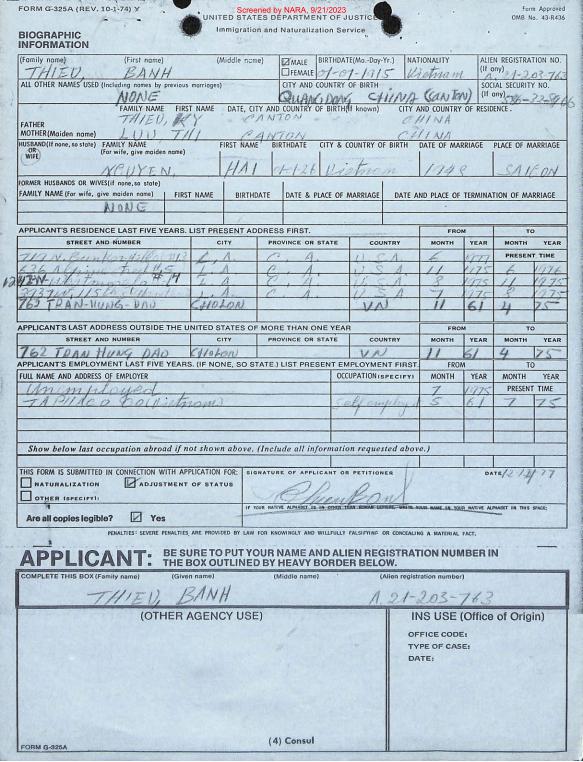 FORM G-325A (REV. 10-1-74) Y
Screened by NARA, 9/21/2023
Form Approved
OMB No. 43-R436
UNITED STATES DEPARTMENT OF JUSTICE
Immigration and Naturalization Service
BIOGRAPHIC
INFORMATION
(Family name) (First name) (Middle name) MALE FEMALE BIRTHDATE(Mo.-Day-Yr.) NATIONALITY ALIEN REGISTRATION NO. (If any)
THIEU, BANH 01-01-1915 Vietnam A 21-203-763
ALL OTHER NAMES USED (Including names by previous marriages) CITY AND COUNTRY OF BIRTH SOCIAL SECURITY NO. (If any)
NONE QUANG DONG CHINA (CANTON)
FAMILY NAME FIRST NAME DATE, CITY AND COUNTRY OF BIRTH(If known) CITY AND COUNTRY OF RESIDENCE.
FATHER THIEU, KY CANTON CHINA
MOTHER(Maiden name) LUU THI CANTON CHINA
HUSBAND(If none, so state) OR WIFE FAMILY NAME (For wife, give maiden name) FIRST NAME BIRTHDATE CITY & COUNTRY OF BIRTH DATE OF MARRIAGE PLACE OF MARRIAGE
NGUYEN, HAI Vietnam SAIGON
FORMER HUSBANDS OR WIVES(if none,so state)
FAMILY NAME(For wife, give maiden name) FIRST NAME BIRTHDATE DATE & PLACE OF MARRIAGE DATE AND PLACE OF TERMINATION OF MARRIAGE
NONE
APPLICANT'S RESIDENCE LAST FIVE YEARS. LIST PRESENT ADDRESS FIRST. FROM TO
STREET AND NUMBER CITY PROVINCE OR STATE COUNTRY MONTH YEAR MONTH YEAR
L.A. C.A. U.S.A. 6 PRESENT TIME
L.A. C.A. U.S.A. 11 1975 6
L.A. C.A. U.S.A. 8 1975 11 1975
L.A. C.A. U.S.A. 7 1975 8 1975
762 TRAN-HUNG-DAO CHOLON VN 11 61 4 75
APPLICANT'S LAST ADDRESS OUTSIDE THE UNITED STATES OF MORE THAN ONE YEAR FROM TO
STREET AND NUMBER CITY PROVINCE OR STATE COUNTRY MONTH YEAR MONTH YEAR
762 TRAN HUNG DAO CHOLON VN 11 61 4 75
APPLICANT'S EMPLOYMENT LAST FIVE YEARS. (IF NONE, SO STATE.) LIST PRESENT EMPLOYMENT FIRST. FROM TO
FULL NAME AND ADDRESS OF EMPLOYER OCCUPATION(SPECIFY) MONTH YEAR MONTH YEAR
Unemployed 7 1975 PRESENT TIME
(Vietnam) Self employed 5 61 7 75
Show below last occupation abroad if not shown above. (Include all information requested above.)
THIS FORM IS SUBMITTED IN CONNECTION WITH APPLICATION FOR: SIGNATURE OF APPLICANT OR PETITIONER DATE
NATURALIZATION ADJUSTMENT OF STATUS
OTHER (SPECIFY):
IF YOUR NATIVE ALPHABET IS IN OTHER THAN ROMAN LETTERS, WRITE YOUR NAME IN YOUR NATIVE ALPHABET IN THIS SPACE:
Are all copies legible? Yes
PENALTIES: SEVERE PENALTIES ARE PROVIDED BY LAW FOR KNOWINGLY AND WILLFULLY FALSIFYING OR CONCEALING A MATERIAL FACT.
APPLICANT: BE SURE TO PUT YOUR NAME AND ALIEN REGISTRATION NUMBER IN
THE BOX OUTLINED BY HEAVY BORDER BELOW.
COMPLETE THIS BOX (Family name) (Given name) (Middle name) (Alien registration number)
THIEU, BANH A. 21-203-763
(OTHER AGENCY USE) INS USE (Office of Origin)
OFFICE CODE:
TYPE OF CASE:
DATE:
(4) Consul
FORM G-325A